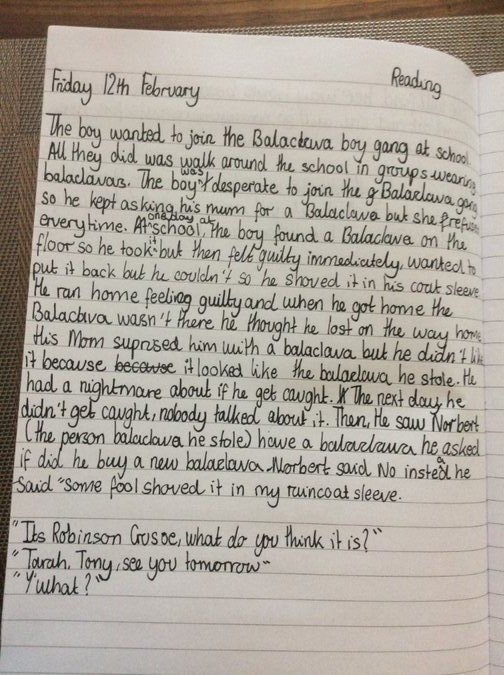 Reading
Friday 12th February
The boy wanted to join the Balaclava boy gang at school.
All they did was walk around the school in groups wearing
balaclavas. The boy was desperate to join the Balaclava gang
so he kept asking his mum for a Balaclava but she
everytime. At one day at school, the boy found a Balaclava on the
floor so he took it but then felt guilty immediately, wanted to
put it back but he couldn't so he shoved it in his coat sleeve
He ran home feeling guilty and when he got home the
Balaclava wasn't there he thought he lost on the way home
His Mom suprised him with a balaclava but he didn't like
it because because it looked like the balaclava he stole. He
had a nightmare about if he get caught. The next day, he
didn't get caught, nobody talked about it. Then, He saw Norbert
(the person balaclava he stole) have a balaclava he asked
if did he buy a new balaclava. Norbert said No instead he
Said "some fool shoved it in my raincoat sleeve.
"Its Robinson Crusoe, what do you think it is?"
"Tarah, Tony, see you tomorrow"
"Y'what?"